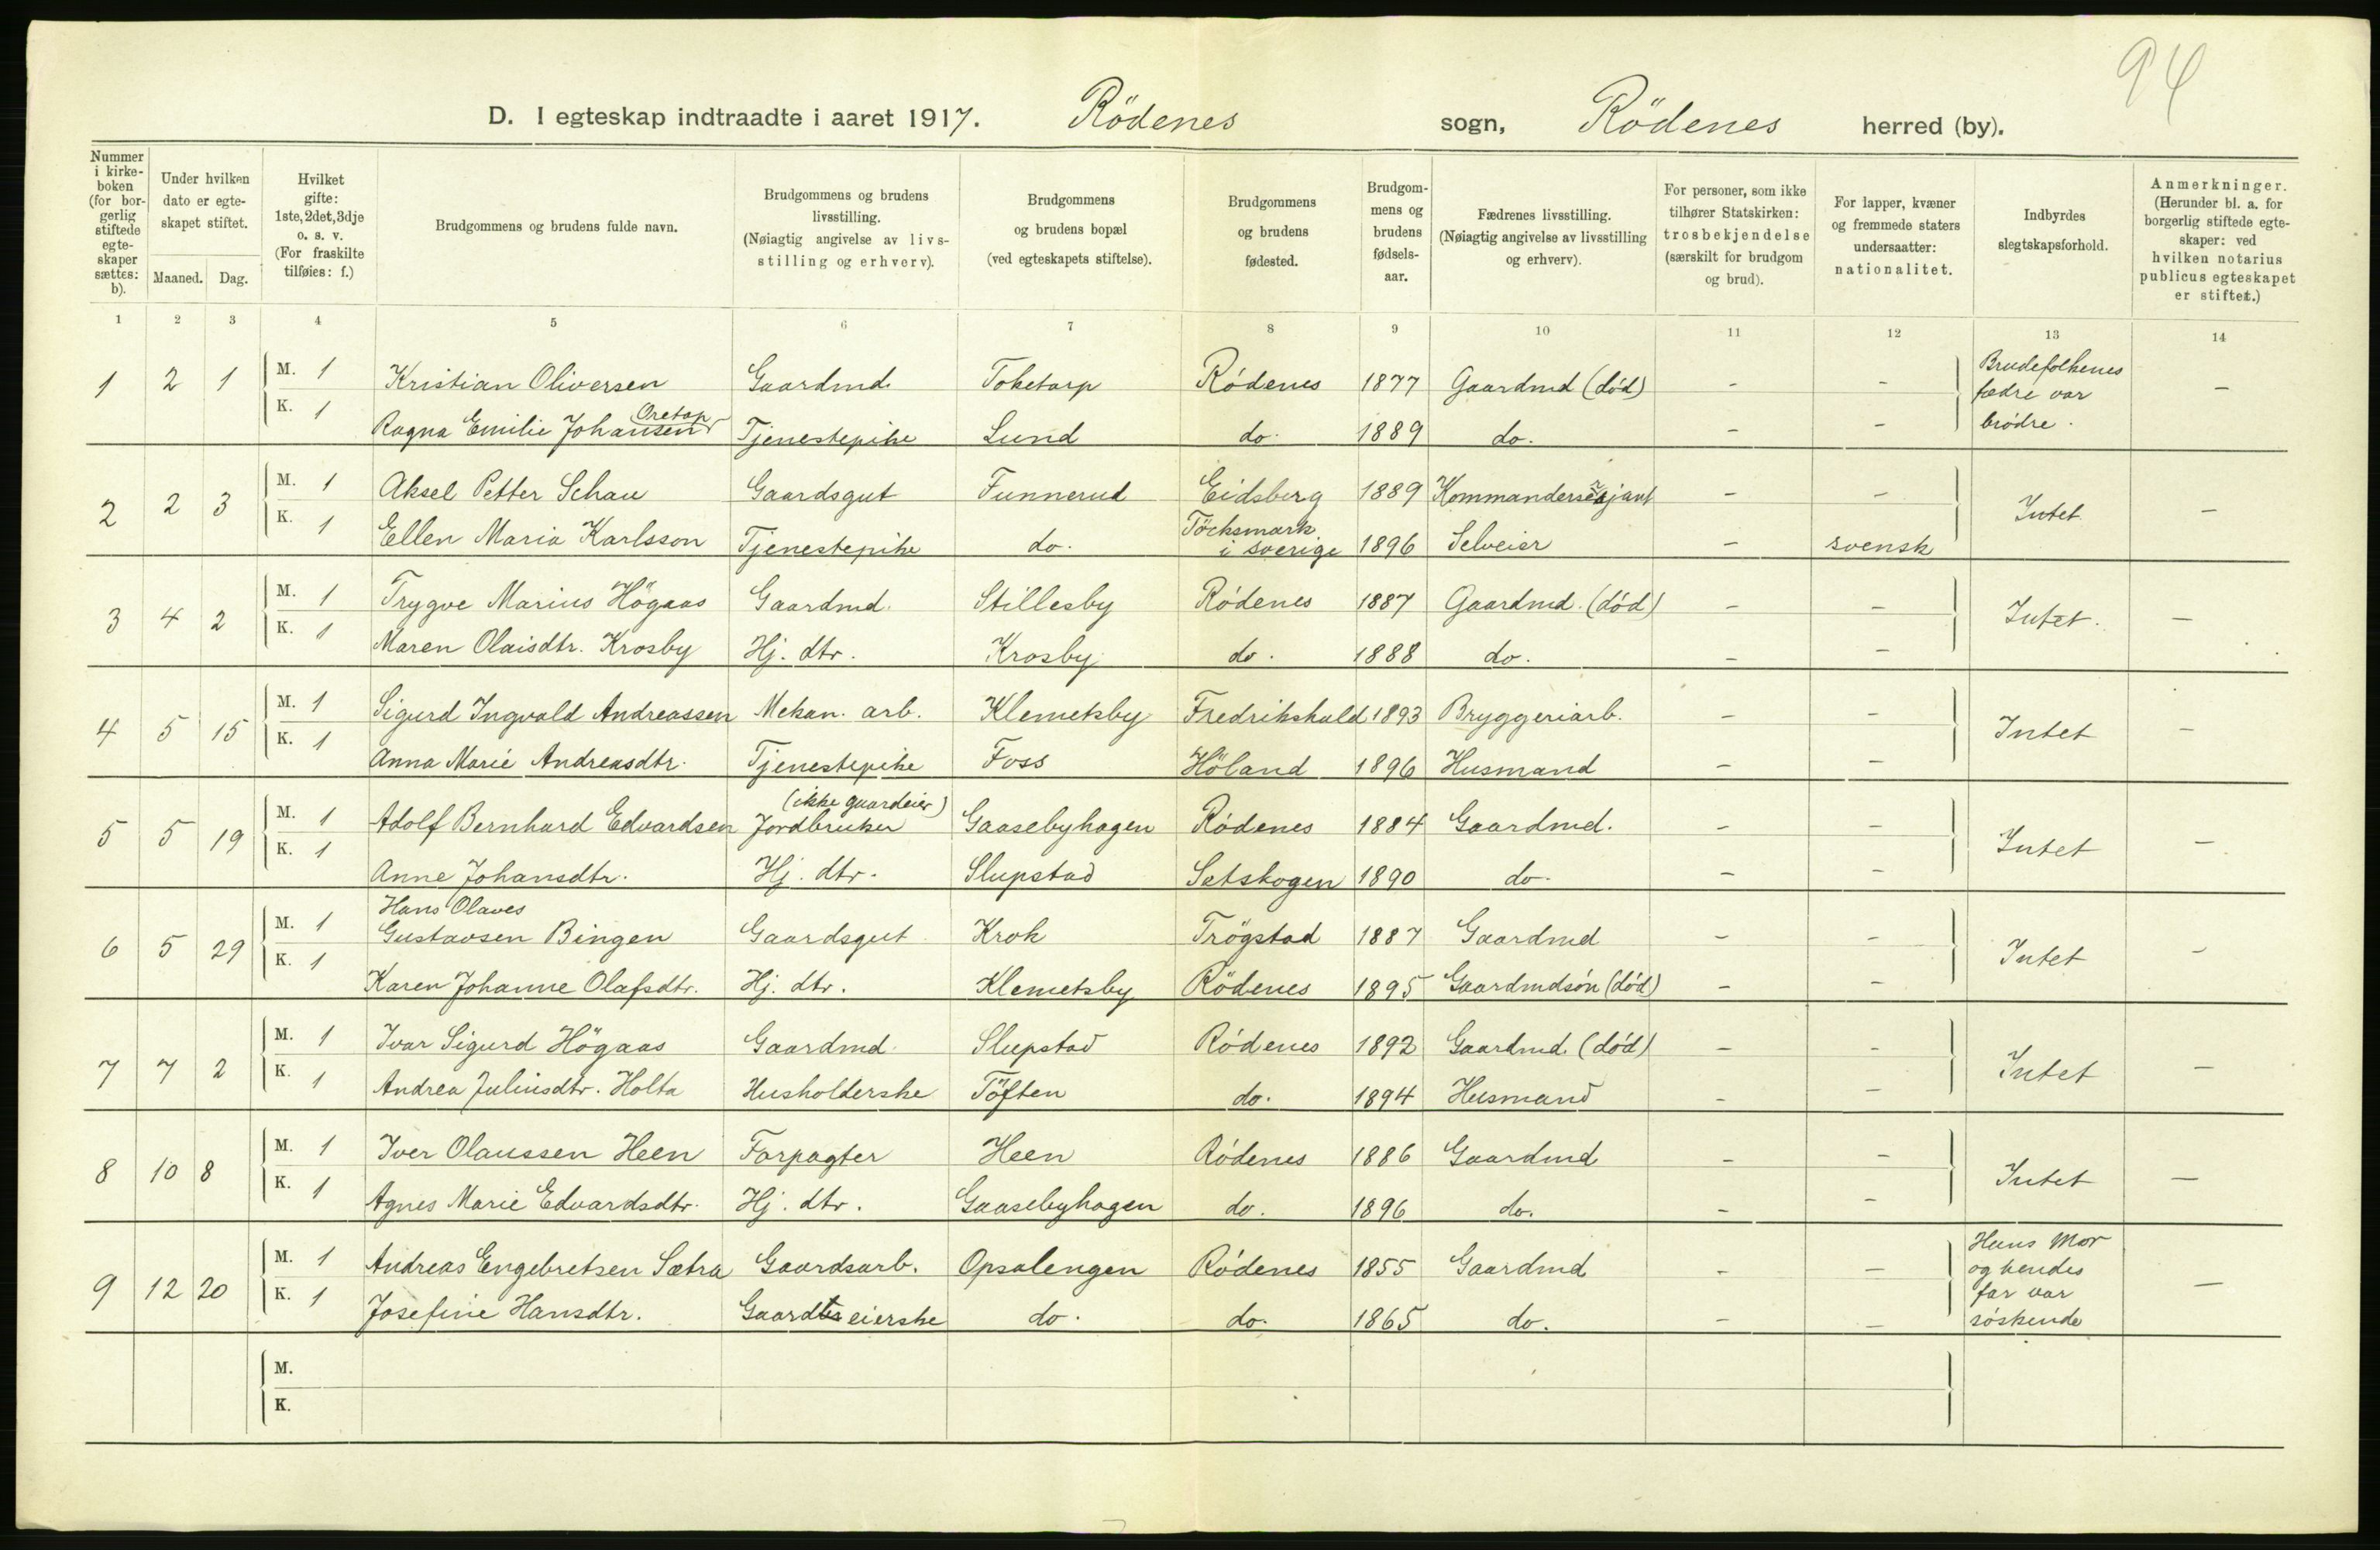 94
D. I egteskap indtraadte i aaret 1917. Rödenes sogn, Rödenes herred (by).
Nummer i kirke-boken (for bor-gerlig stiftede egte-skaper sættes: b).
Under hvilken dato er egte-skapet stiftet.
Maaned. Dag.
Hvilket gifte: 1ste, 2det, 3dje o. s. v. (For fraskilte tilføies: f.)
Brudgommens og brudens fulde navn.
Brudgommens og brudens livsstilling. (Nøiagtig angivelse av livs-stilling og erhverv).
Brudgommens og brudens bopæl (ved egteskapets stiftelse).
Brudgommens og brudens fødested.
Brudgom-mens og brudens fødsels-aar.
Fædrenes livsstilling. (Nøiagtig angivelse av livsstilling og erhverv).
For personer, som ikke tilhører Statskirken: trosbekjendelse (særskilt for brudgom og brud).
For lapper, kvæner og fremmede staters undersaatter: nationalitet.
Indbyrdes slegtskapsforhold.
Anmerkninger. (Herunder bl. a. for borgerlig stiftede egte-skaper: ved hvilken notarius publicus egteskapet er stiftet.)
1 2 3 4 5 6 7 8 9 10 11 12 13 14
1 2 1 M. 1 Kristian Oliversen Gaardmd. Toketorp Rödenes 1877 Gaardmd (död) - - Brudefolkenes fædre var brødre. -
K. 1 Ragna Emilie Johansen Oretop Tjenestepike Lund do. 1889 do. - -
2 2 3 M. 1 Aksel Petter Schau Gaardsgut Funnerud Eidsberg 1889 Kommandersersjant - - Intet -
K. 1 Ellen Maria Karlsson Tjenestepike do. Töcksmark i sverige 1896 Selveier - svensk
3 4 2 M. 1 Trygve Marius Högaas Gaardmd. Stillesby Rödenes 1887 Gaardmd. (död) - - Intet. -
K. 1 Maren Olaisdtr. Krosby Hj. dtr. Krosby do. 1888 do. - -
4 5 15 M. 1 Sigurd Ingvald Andreassen Mekan. arb. Klemetsby Fredrikshald 1893 Bryggeriarb. - - Intet -
K. 1 Anna Marie Andreasdtr. Tjenestepike Foss Höland 1896 Husmand - -
5 5 19 M. 1 Adolf Bernhard Edvardsen (ikke gaardeier) Jordbruker Gaasebyhagen Rödenes 1884 Gaardmd. - - Intet -
K. 1 Anne Johansdtr. Hj. dtr. Slupstad Setskogen 1890 do. - -
6 5 29 M. 1 Hans Olaves Gustavsen Bingen Gaardsgut Krok Trögstad 1887 Gaardmd - - Intet -
K. 1 Karen Johanne Olafsdtr. Hj. dtr. Klemetsby Rödenes 1895 Gaardmdsön (död) - -
7 7 2 M. 1 Ivar Sigurd Högaas Gaardmd. Slupstad Rödenes 1892 Gaardmd. (död) - - Intet -
K. 1 Andrea Juliusdtr. Holta Husholderske Töften do. 1894 Husmand - -
8 10 8 M. 1 Iver Olaussen Heen Forpagter Heen Rödenes 1886 Gaardmd - - Intet -
K. 1 Agnes Marie Edvardsdtr. Hj. dtr. Gaasebyhagen do. 1896 do. - -
9 12 20 M. 1 Andreas Engebretsen Sætra Gaardsarb. Opsalengen Rödenes 1855 Gaardmd - - Hans Mor og hendes far var söskende -
K. 1 Josefine Hansdtr. Gaardeierske do. do. 1865 do. - -
M.
K.